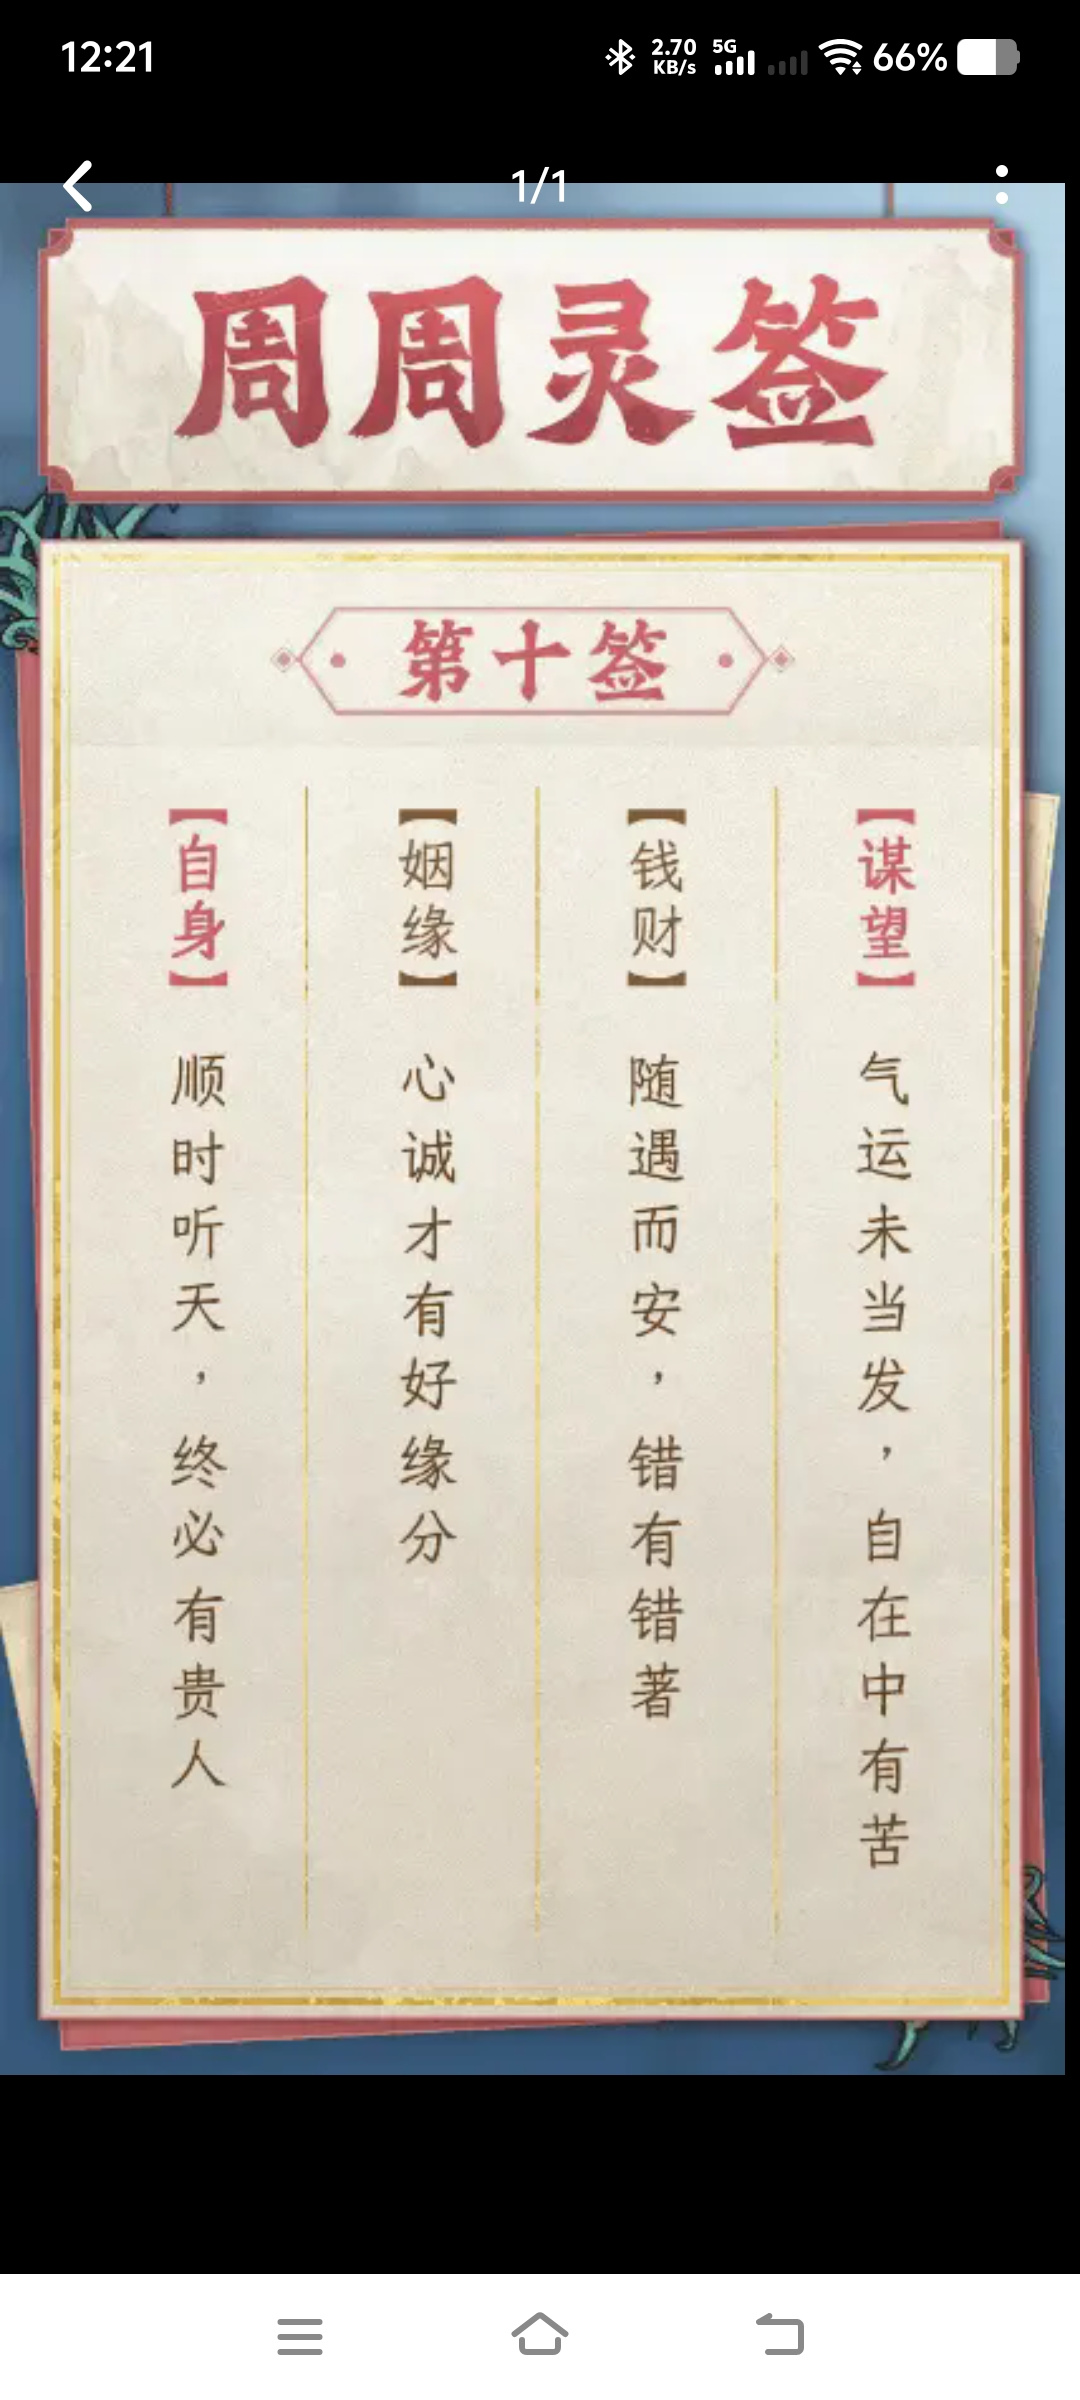 12:21
2.70 KB/s 5G 66%
1/1
周周灵签
第十签
【谋望】
气运未当发，自在中有苦
【钱财】
随遇而安，错有错著
【姻缘】
心诚才有好缘分
【自身】
顺时听天，终必有贵人